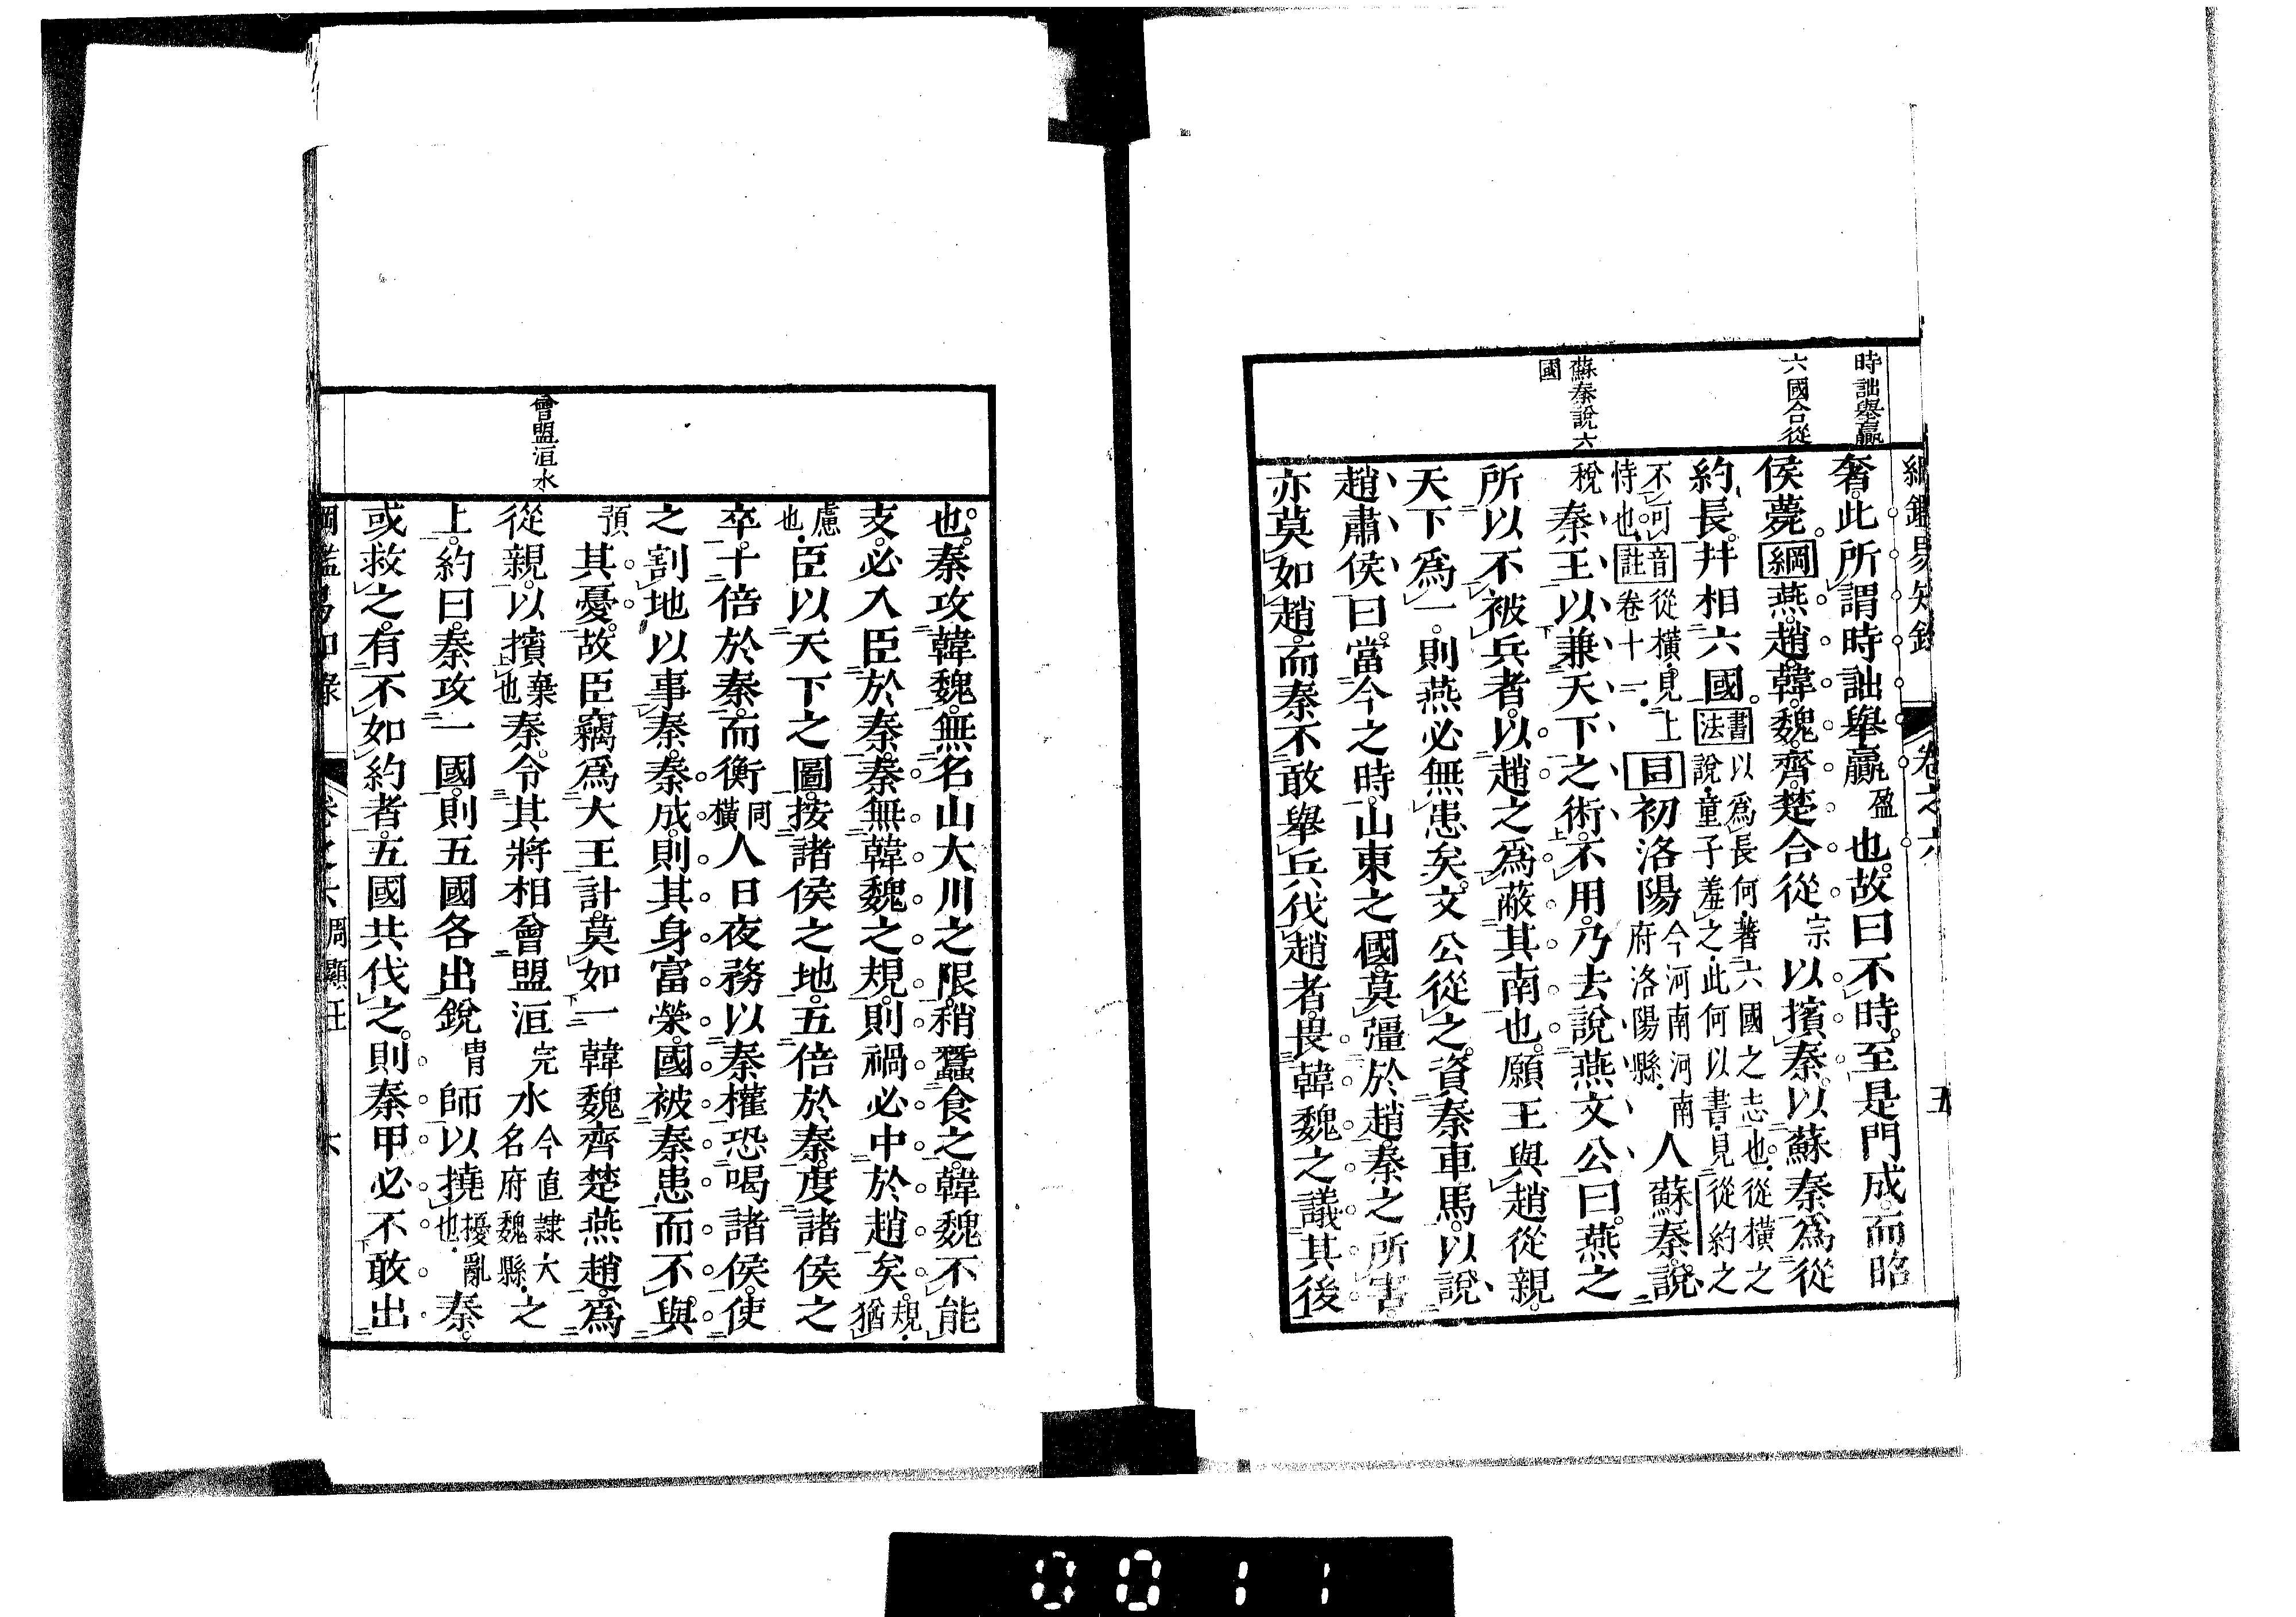 綱鑑易知錄 卷之六 五
時詘舉贏
六國合從
蘇秦說六
國
奢。此所謂時詘舉贏盈也。故曰不時。至是門成。而昭
侯薨。綱燕。趙。韓。魏。齊。楚合從宗以擯秦。以蘇秦爲從
約長。幷相六國。書法以爲長何。著六國之志也。從橫之
說。童子羞之。此何以書。見從約之
不可
恃也。音註從橫。見上
卷十一。目初洛陽今河南河南
府洛陽縣。人蘇秦。說
稅秦王以兼天下之術。不用。乃去說燕文公曰。燕之
所以不被兵者。以趙之爲蔽其南也。願王與趙從親。
天下爲一。則燕必無患矣。文公從之。資秦車馬。以說
趙肅侯曰。當今之時。山東之國。莫彊於趙。秦之所害。
亦莫如趙。而秦不敢舉兵伐趙者。畏韓魏之議其後
會盟洹水
也。秦攻韓魏。無名山大川之限。稍蠶食之。韓魏不能
支。必入臣於秦。秦無韓魏之規。則禍必中於趙矣。規。
猶
慮
也。臣以天下之圖。按諸侯之地。五倍於秦。度諸侯之
卒。十倍於秦。而衡同
橫人日夜務以秦權恐喝諸侯。使
之割地以事秦。秦成。則其身富榮。國被秦患而不與
預其憂。故臣竊爲大王計。莫如一韓魏齊楚燕趙。爲
從親。以擯棄
也秦。令其將相會盟洹完水今直隸大
名府魏縣。之
上。約曰。秦攻一國。則五國各出銳胄師以撓擾亂
也。秦。
或救之。有不如約者。五國共伐之。則秦甲必不敢出
綱鑑易知錄 卷之六 周顯王 六
0011